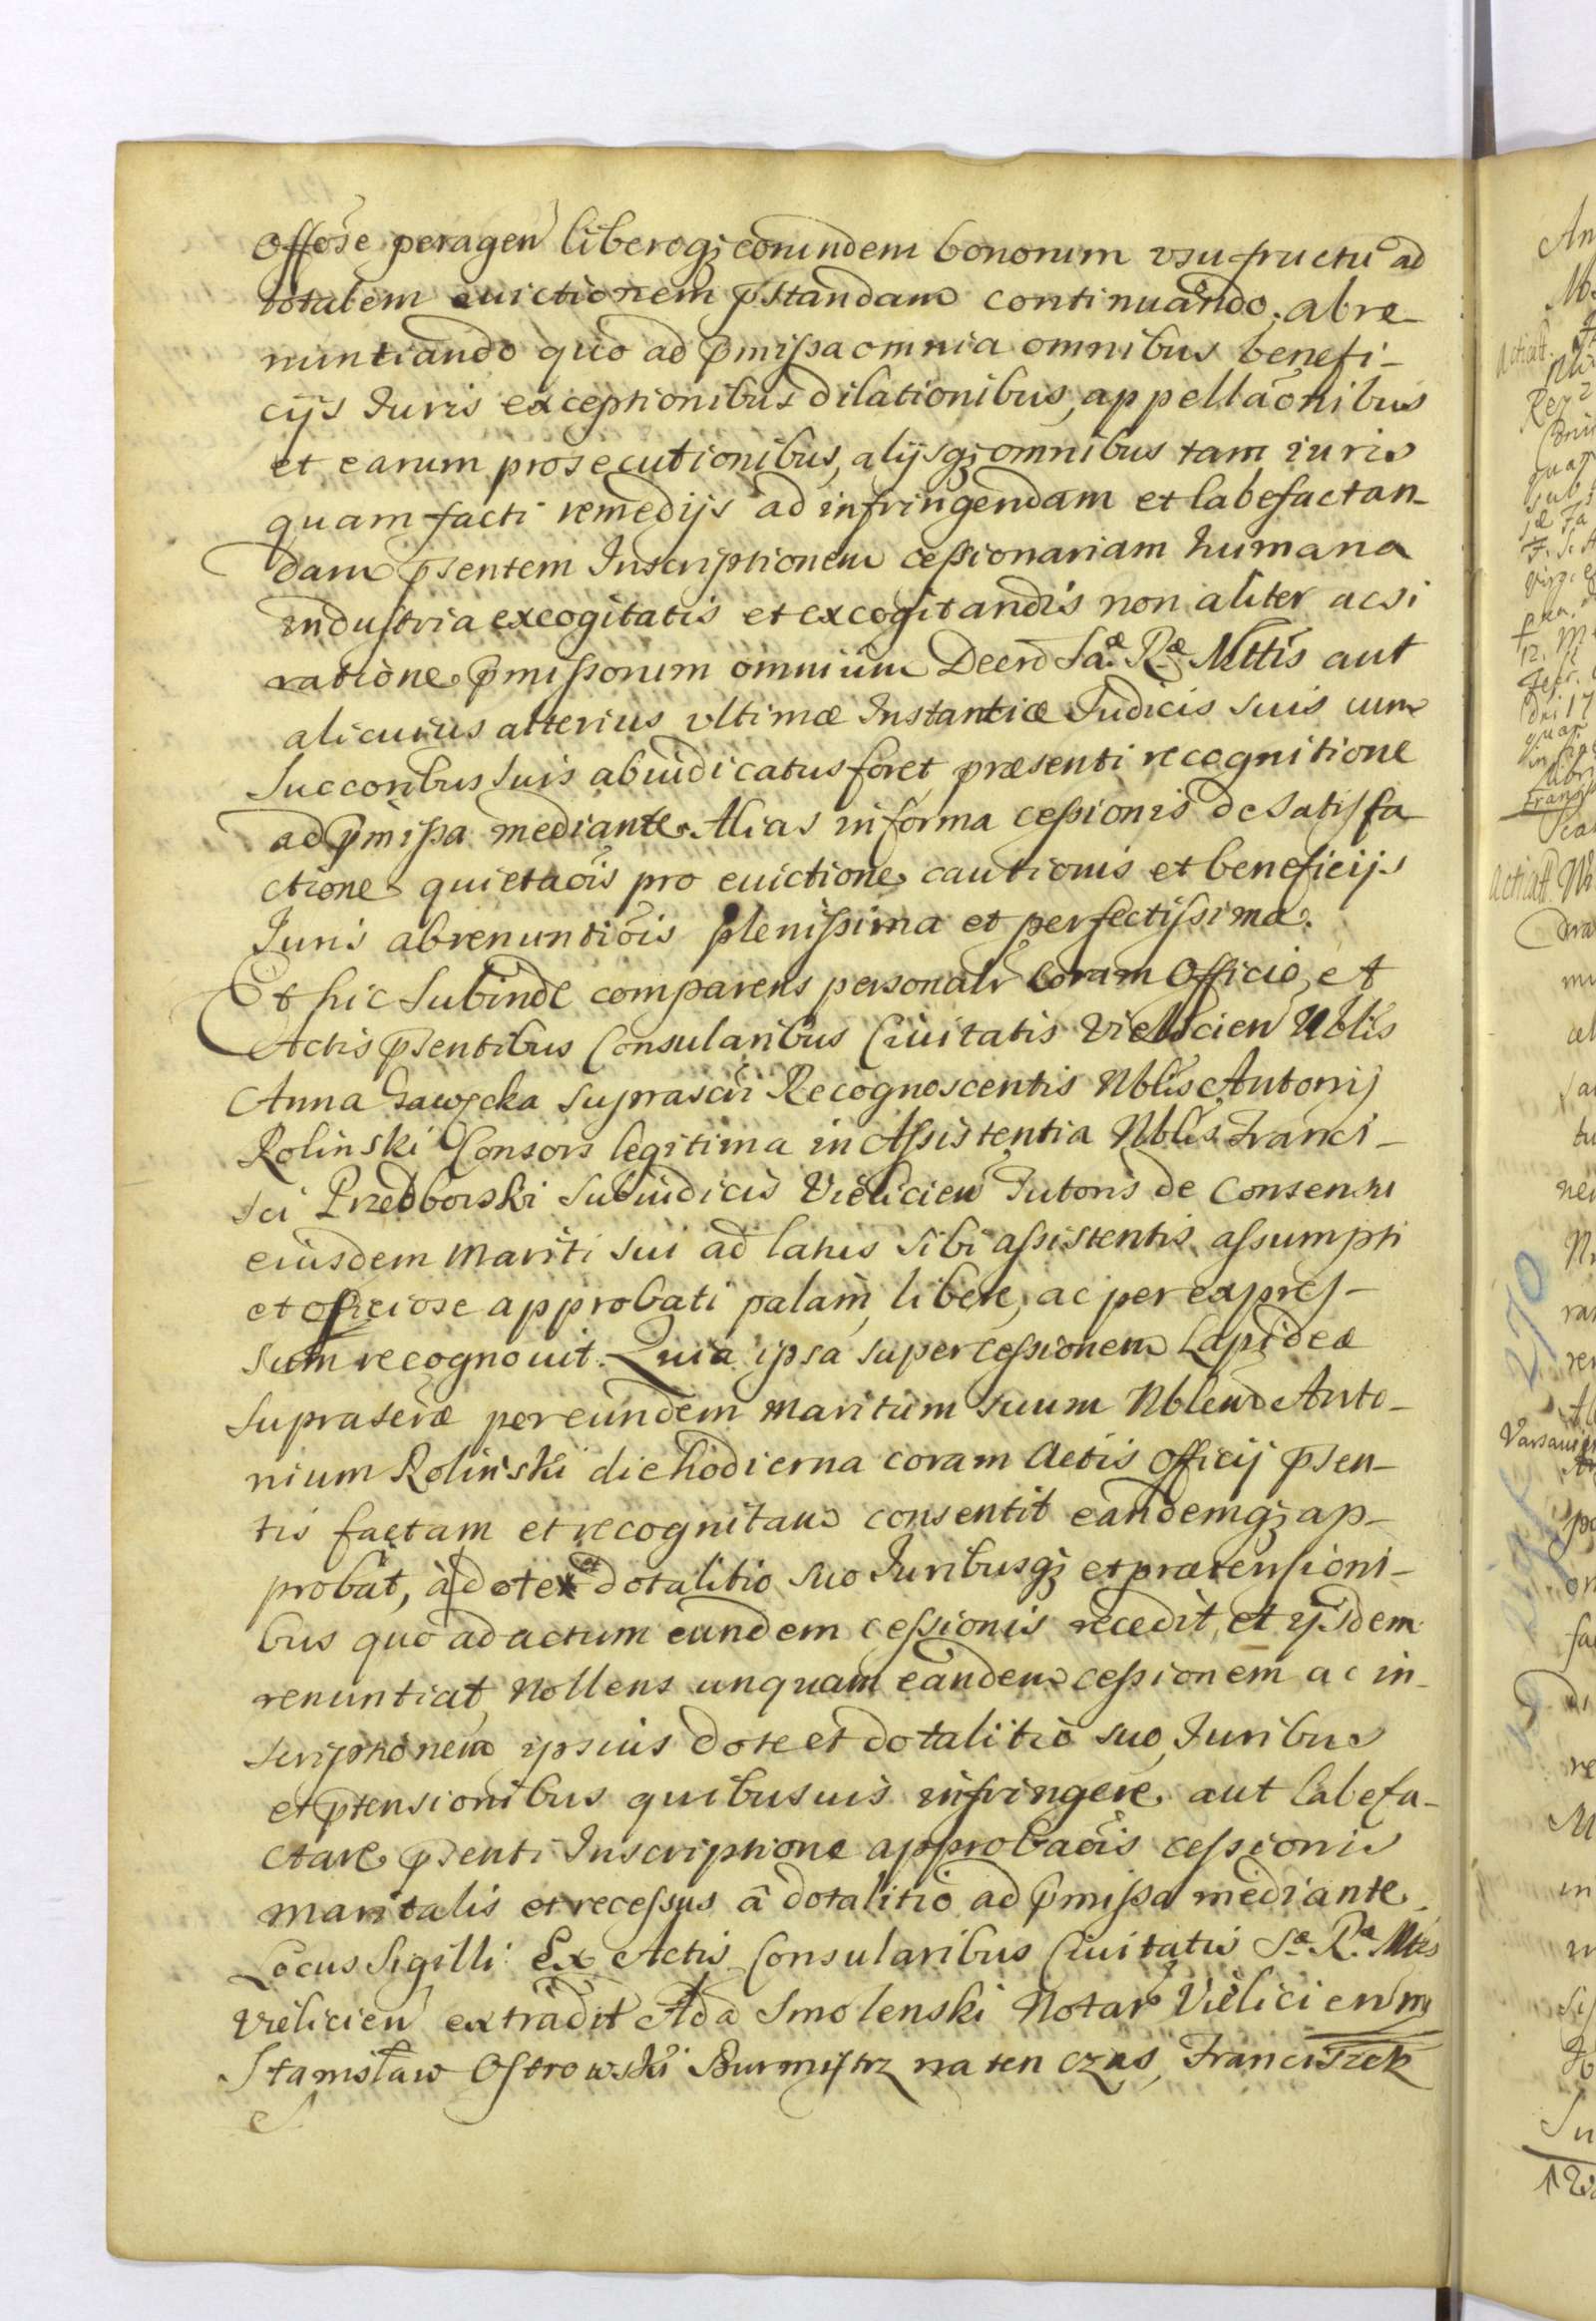 offőse peragen liberoqꝫ eorundem bonorum vsu-fructu ad
totalem euictionem p̄standam continuando, abre-
nuntiando quo ad p̄missa omnia omnibus benefi-
cijs Iuris exceptionibus dilationibus, appellaōnibus
et earum prosecutionibus, alijsqꝫ omnibus tam iuris
quam facti remedijs ad infringendam et labefactan-
dam p̄sentem Inscriptionem cessionariam humana
industria excogitatis et excogitandis non aliter acsi
ratione p̄missorum omnium Decro Saæ. Ræ Mttis aut
alicuius alterius vltimæ Instantiæ Iudicis suis cum
Succoribus suis abiudicatus foret præsenti recognitione
ad p̄missa mediante. Alias in forma cessionis de satisfa
ctione quietaōis pro euictione cautionis et beneficijs
Iuris abrenuntiōis plenissima et perfectissima.
Et hic subinde comparens personalr coram Officio, et
Actis p̄sentibus Consularibus Ciuitatis Vielicien Nblis
Anna Gawęcka suprascri Recognoscentis Nblis Antonij
Rolinski Consors legitima in Assistentia Nblis Franci-
sci Przedborski Subiudicis Vielicien Tutoris de Consensu
eiusdem Mariti sui ad latus sibi assistentis assumpti
et officiose approbati palam, libere, ac per expres-
sum recognouit. Quia ipsa super cessionem Lapideæ
suprascræ per eundem Maritum suum Nblem Anto-
nium Rolinski die hodierna coram Actis Officij p̄sen-
tis factam et recognitam consentit eandemqꝫ ap-
probat, à dote et dotalitio suo Iuribusqꝫ et prætensioni-
bus quo ad actum eundem cessionis recedit, et ijsdem
renuntiat, Nollens unquam eandem cessionem ac in-
scriptionem ipsius dote et dotalitio suo, Iuribus
et p̄tensionibus quibusuis infringere aut labefa-
ctare p̄senti Inscriptione approbaōis cessionis
maritalis et recessus â dotalitio ad p̄missa mediante.
Locus Sigilli Ex Actis Consularibus Ciuitatis Sæ. Ræ. Mtis
Vielicien extradit Ada Smolenski Notar Vielicien mp
Stanisław Ostrowski Burmistrz na ten czas, Franciszek